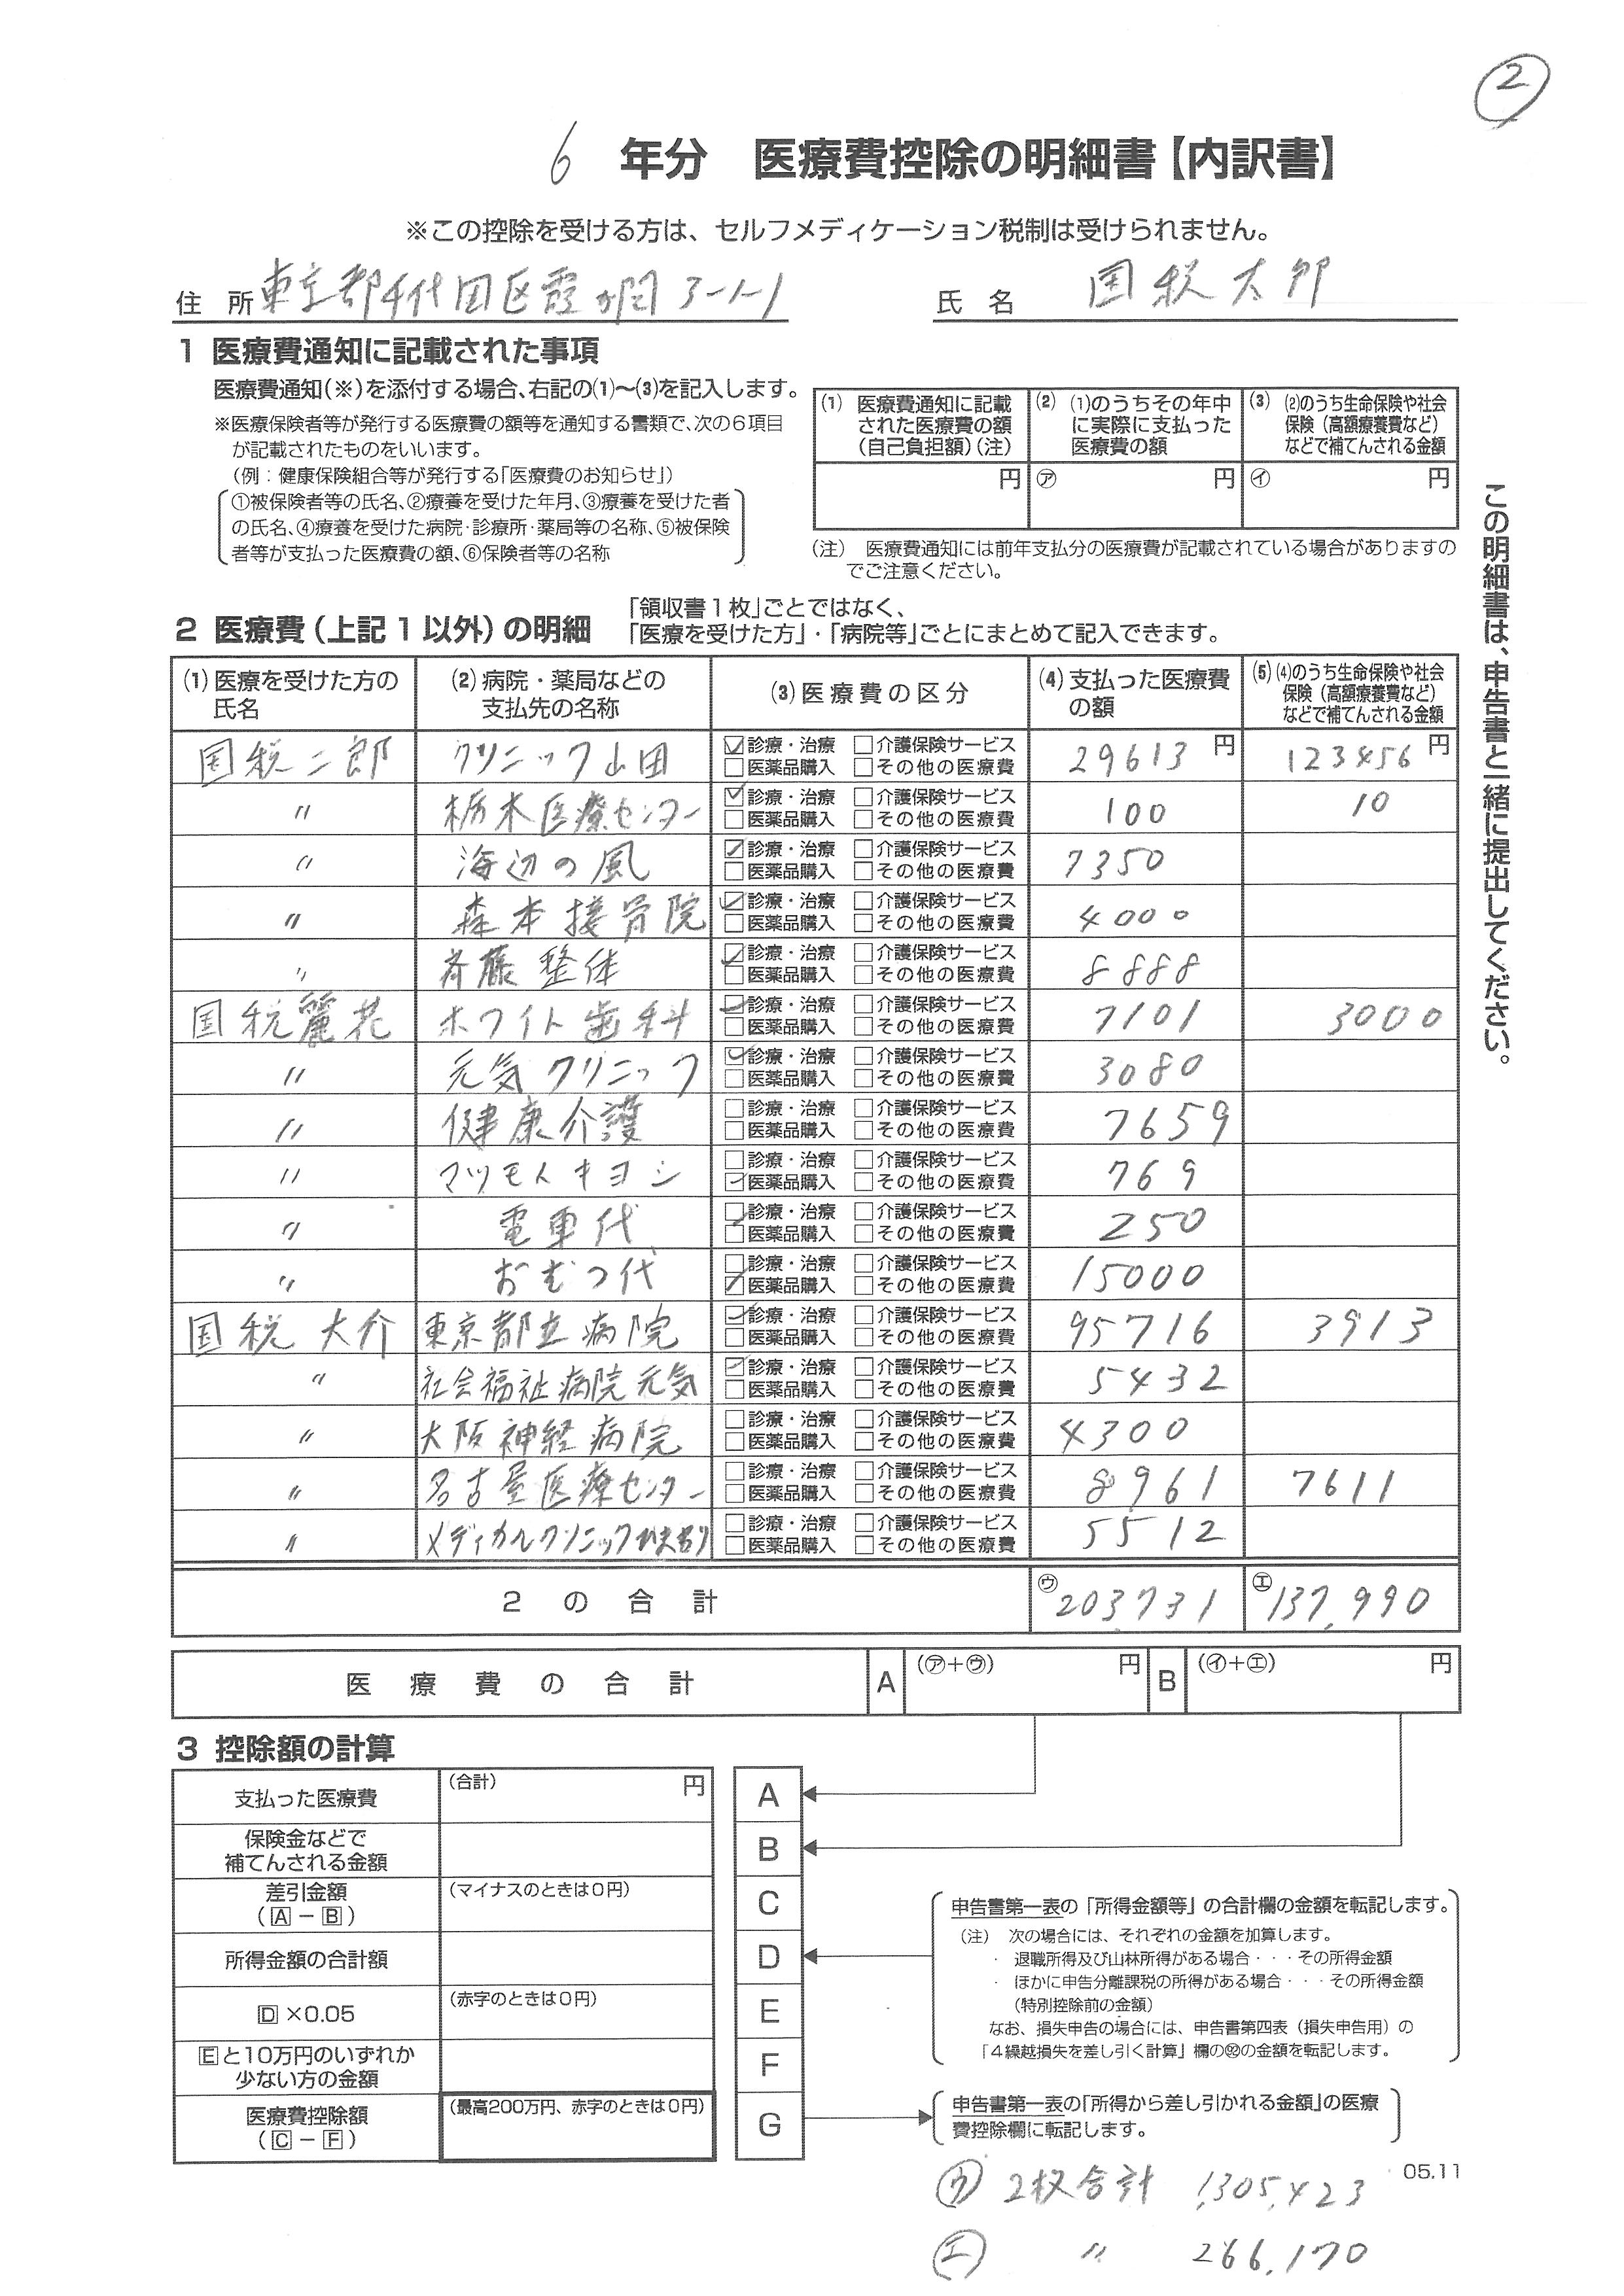 ②
6 年分 医療費控除の明細書【内訳書】
※この控除を受ける方は、セルフメディケーション税制は受けられません。
住所 東京都千代田区霞が関3-1-1 氏名 国税太郎
1 医療費通知に記載された事項
医療費通知(※)を添付する場合、右記の(1)〜(3)を記入します。
※医療保険者等が発行する医療費の額等を通知する書類で、次の6項目
が記載されたものをいいます。
(例:健康保険組合等が発行する「医療費のお知らせ」)
①被保険者等の氏名、②療養を受けた年月、③療養を受けた者
の氏名、④療養を受けた病院・診療所・薬局等の名称、⑤被保険
者等が支払った医療費の額、⑥保険者等の名称
(1) 医療費通知に記載
された医療費の額
(自己負担額)(注)
(2) (1)のうちその年中
に実際に支払った
医療費の額
(3) (2)のうち生命保険や社会
保険(高額療養費など)
などで補てんされる金額
円 ㋐ 円 ㋑ 円
(注) 医療費通知には前年支払分の医療費が記載されている場合がありますの
でご注意ください。
2 医療費(上記1以外)の明細
「領収書1枚」ごとではなく、
「医療を受けた方」・「病院等」ごとにまとめて記入できます。
(1)医療を受けた方の
氏名
(2)病院・薬局などの
支払先の名称
(3)医療費の区分
(4)支払った医療費
の額
(5)(4)のうち生命保険や社会
保険(高額療養費など)
などで補てんされる金額
国税二郎 クリニック山田 ☑診療・治療 □介護保険サービス 29613円 123456円
□医薬品購入 □その他の医療費
〃 栃木医療センター ☑診療・治療 □介護保険サービス 100 10
□医薬品購入 □その他の医療費
〃 海辺の風 ☑診療・治療 □介護保険サービス 7350
□医薬品購入 □その他の医療費
〃 森本接骨院 ☑診療・治療 □介護保険サービス 4000
□医薬品購入 □その他の医療費
〃 斉藤整体 ☑診療・治療 □介護保険サービス 8888
□医薬品購入 □その他の医療費
国税麗花 ホワイト歯科 ☑診療・治療 □介護保険サービス 7101 3000
□医薬品購入 □その他の医療費
〃 元気クリニック ☑診療・治療 □介護保険サービス 3080
□医薬品購入 □その他の医療費
〃 健康介護 □診療・治療 □介護保険サービス 7659
□医薬品購入 □その他の医療費
〃 マツモトキヨシ □診療・治療 □介護保険サービス 769
☑医薬品購入 □その他の医療費
〃 電車代 ☑診療・治療 □介護保険サービス 250
□医薬品購入 □その他の医療費
〃 おむつ代 □診療・治療 □介護保険サービス 15000
☑医薬品購入 □その他の医療費
国税大介 東京都立病院 ☑診療・治療 □介護保険サービス 95716 3913
□医薬品購入 □その他の医療費
〃 社会福祉病院元気 ☑診療・治療 □介護保険サービス 5432
□医薬品購入 □その他の医療費
〃 大阪神経病院 □診療・治療 □介護保険サービス 4300
□医薬品購入 □その他の医療費
〃 名古屋医療センター □診療・治療 □介護保険サービス 8961 7611
□医薬品購入 □その他の医療費
〃 メディカルクリニックひまわり □診療・治療 □介護保険サービス 5512
□医薬品購入 □その他の医療費
2の合計 ㋒ 203,731 ㋓ 137,990
医療費の合計 A (㋐+㋒) 円 B (㋑+㋓) 円
この明細書は、申告書と一緒に提出してください。
3 控除額の計算
支払った医療費 (合計) 円 A
保険金などで
補てんされる金額 B
差引金額
(A-B) (マイナスのときは0円) C
所得金額の合計額 D
D×0.05 (赤字のときは0円) E
Eと10万円のいずれか
少ない方の金額 F
医療費控除額
(C-F) (最高200万円、赤字のときは0円) G
申告書第一表の「所得金額等」の合計欄の金額を転記します。
(注) 次の場合には、それぞれの金額を加算します。
・ 退職所得及び山林所得がある場合・・・その所得金額
・ ほかに申告分離課税の所得がある場合・・・その所得金額
(特別控除前の金額)
なお、損失申告の場合には、申告書第四表(損失申告用)の
「4繰越損失を差し引く計算」欄の㊷の金額を転記します。
申告書第一表の「所得から差し引かれる金額」の医療
費控除欄に転記します。
05.11
㋒ 2枚合計 1,305,423
㋓ 〃 266,170